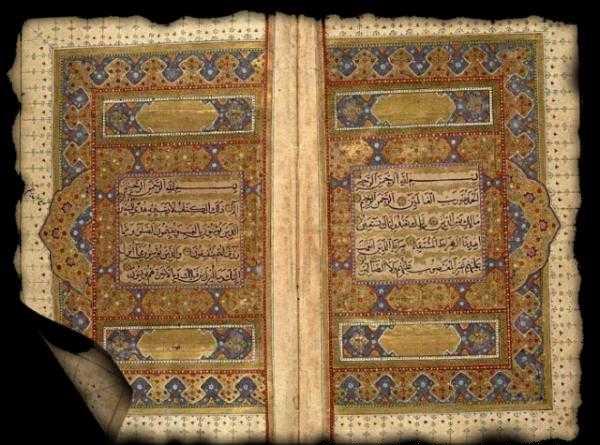 بسم الله الرحمن الرحيم
الحمد لله رب العالمين الرحمن الرحيم
مالك يوم الدين اياك نعبد واياك نستعين
اهدنا الصراط المستقيم صراط الذين انعمت
عليهم غير المغضوب عليهم ولا الضالين
بسم الله الرحمن الرحيم
الم ذلك الكتاب لا ريب فيه هدى للمتقين
الذين يؤمنون بالغيب ويقيمون الصلوة ومما
رزقناهم ينفقون والذين يؤمنون بما
انزل اليك